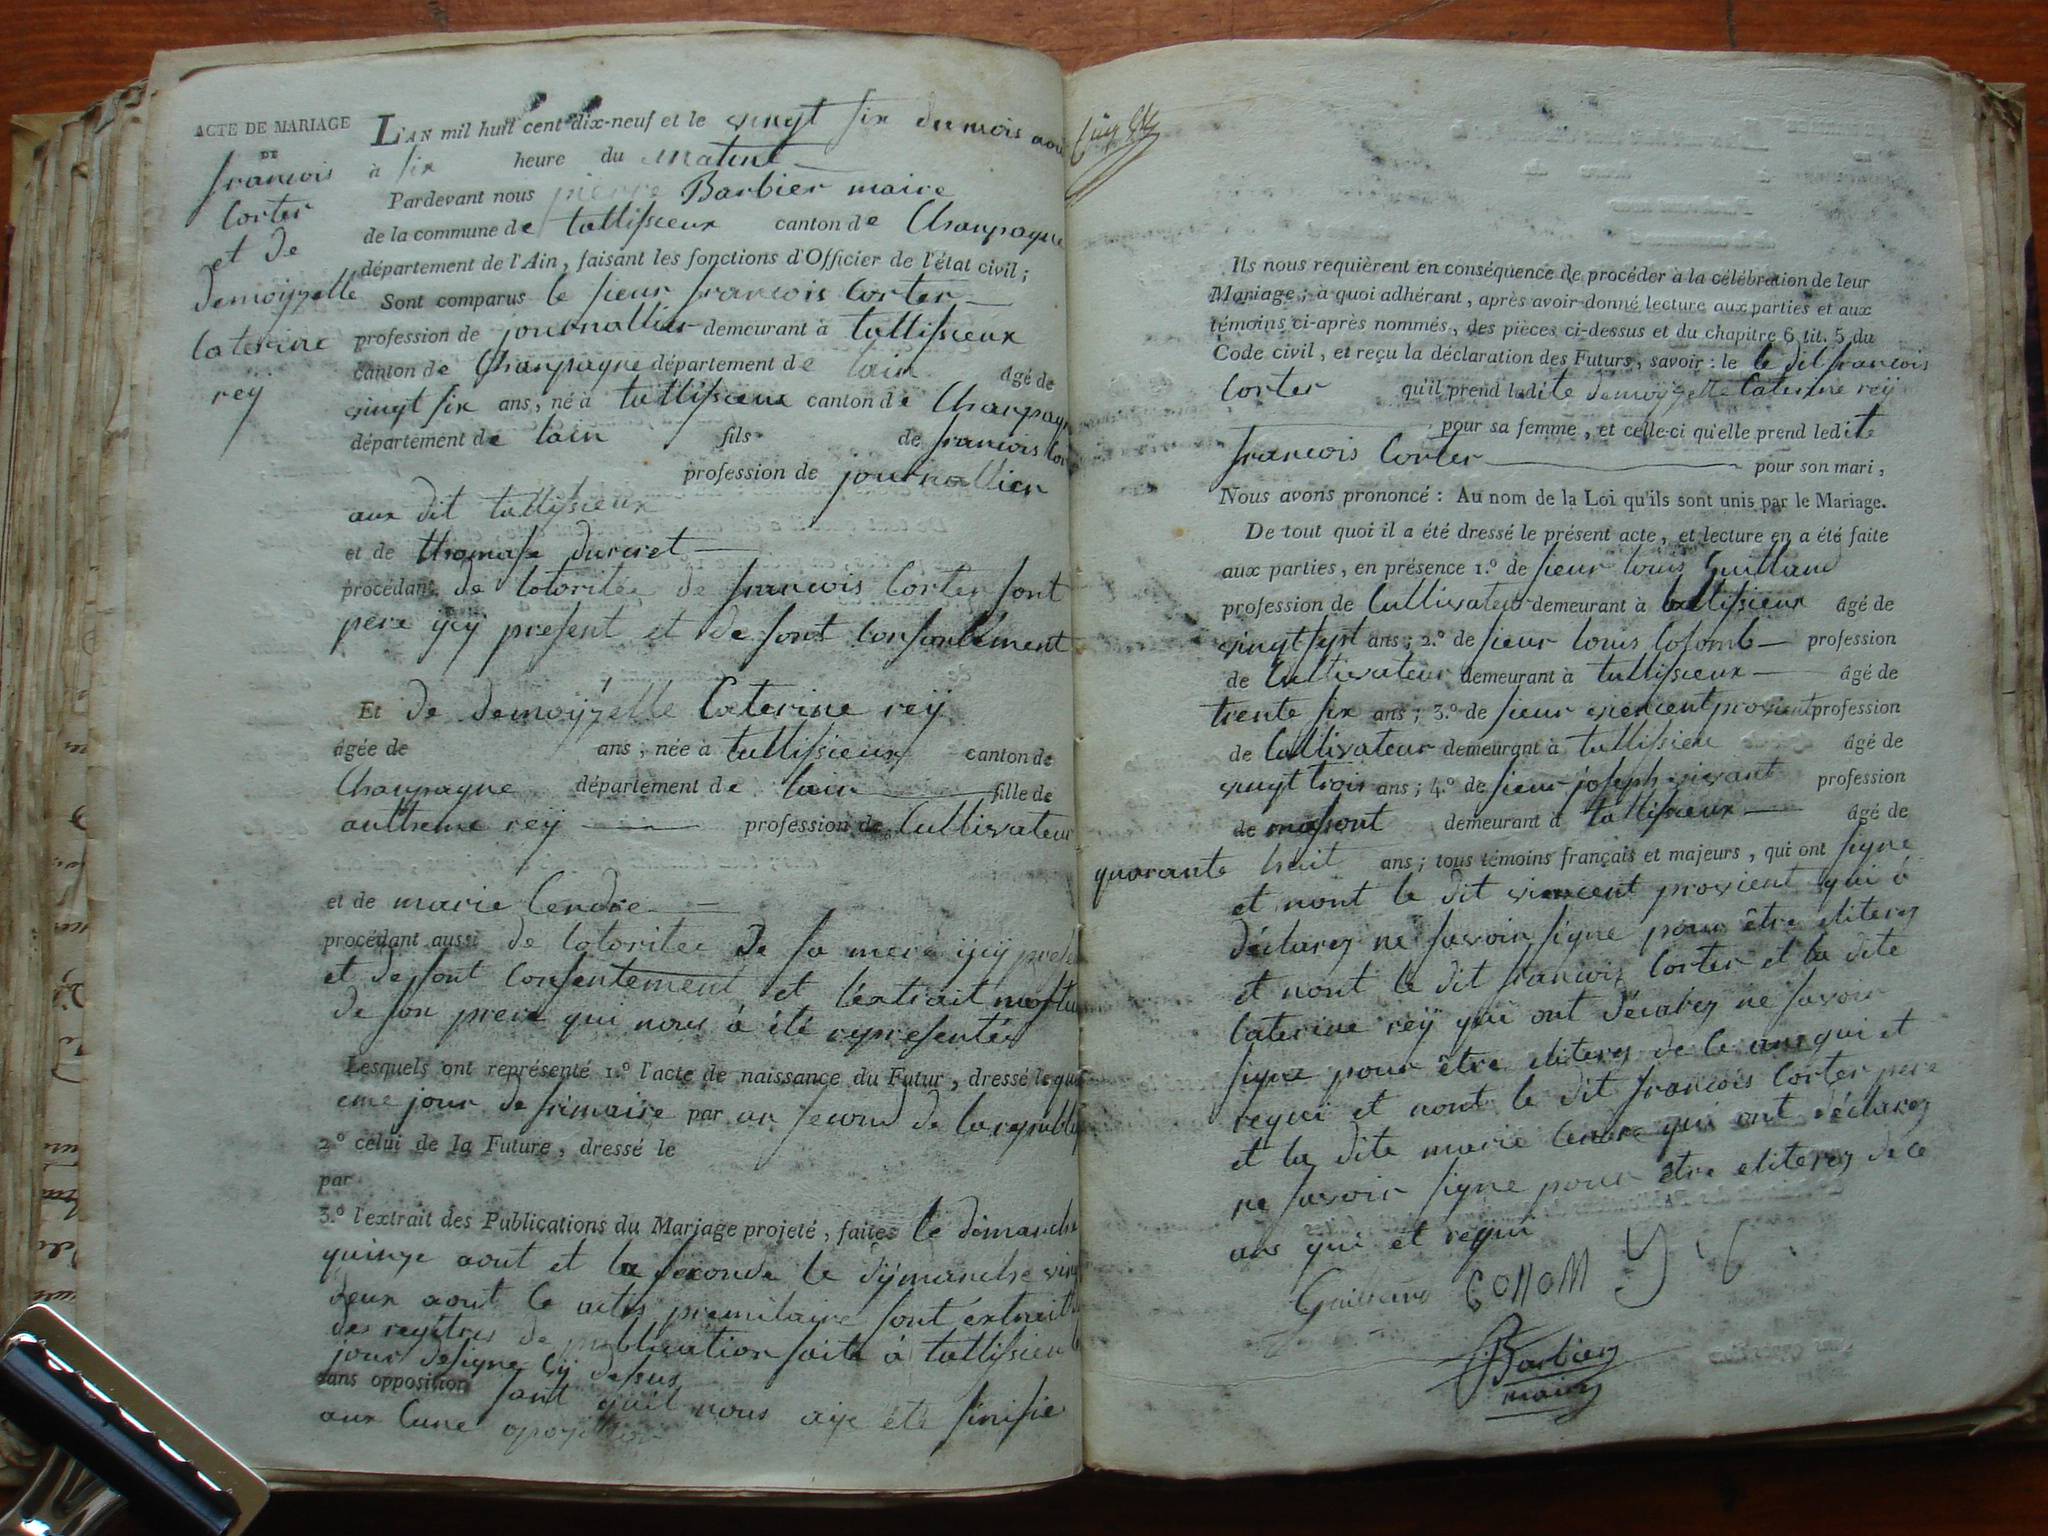 ACTE DE MARIAGE
DE
francois
Corter
et de
demoyzelle
Caterine
rey
L'AN mil huit cent dix-neuf et le vingt six du mois aou
à six heure du matint
Pardevant nous pierre Barbier maire
de la commune de tallissieux canton de Champagne
département de l'Ain, faisant les fonctions d'Officier de l'état civil;
Sont comparus le sieur francois Corter
profession de journallier demeurant à tallissieux
canton de Champagne département de lain âgé de
vingt six ans, né à tallissieux canton de Champagn
département de lain fils de francois Cor
profession de journallier
aux dit tallissieux
et de thomase durciet
procédant de lotoritée de francois Corter sont
pere ycy present et de sont Consentement
Et de demoyzelle Caterine rey
âgée de ans, née à tallissieux canton de
Champagne département de lain fille de
antheme rey profession de Cultivateur
et de marie Cendre
procédant aussi de lotoritee de sa mere ycy prese
et de sont Consentement et l'extrait mortu
de son prere qui nous à été representés
Lesquels ont représenté 1.º l'acte de naissance du Futur, dressé le qua
eme jour de frimaire par an second de la republi
2º celui de la Future, dressé le
par
3.º l'extrait des Publications du Mariage projeté, faites le dimanche
quinze aout et la seconde le dymanche ving
deux aout Ce actes premilaire sont extrait
des regitres de publication faite à tallissieu
jour designe Cy dessus
sans opposition sant quil nous aye été sinifie
aux Cune oposition
Ils nous requièrent en conséquence de procéder à la célébration de leur
Mariage; à quoi adhérant, après avoir donné lecture aux parties et aux
témoins ci-après nommés, des pièces ci-dessus et du chapitre 6 tit. 5 du
Code civil, et reçu la déclaration des Futurs, savoir: le le dit francois
Corter qu'il prend ladite demoyzelle Caterine rey
pour sa femme, et celle-ci qu'elle prend ledite
francois Corter pour son mari,
Nous avons prononcé: Au nom de la Loi qu'ils sont unis par le Mariage.
De tout quoi il a été dressé le présent acte, et lecture en a été faite
aux parties, en présence 1.º de sieur louis Guilland
profession de Cultivateur demeurant à tallissieux âgé de
vingt sept ans; 2.º de sieur louis Colomb profession
de Cultivateur demeurant à tallissieux âgé de
trente six ans; 3.º de sieur viencent provient profession
de Cultivateur demeurant à tallissieu âgé de
vingt trois ans; 4.º de sieur joseph vivant profession
de massont demeurant à tallissieux âgé de
quarante huit ans; tous témoins français et majeurs, qui ont signe
et nont le dit viencent provient qui à
déclarez ne savoir signe pour être eliterez
et nont le dit francois Corter et la dite
Caterine rey qui ont décarez ne savoir
signe pour être eliterez de ce ans qui et
requi et nont le dit francois Corter pere
et la dite marie Cendre qui ont déclarez
ne savoir signe pour être eliterez de ce
ans qui et requi
Guilland COLLOM
Barbier
maire